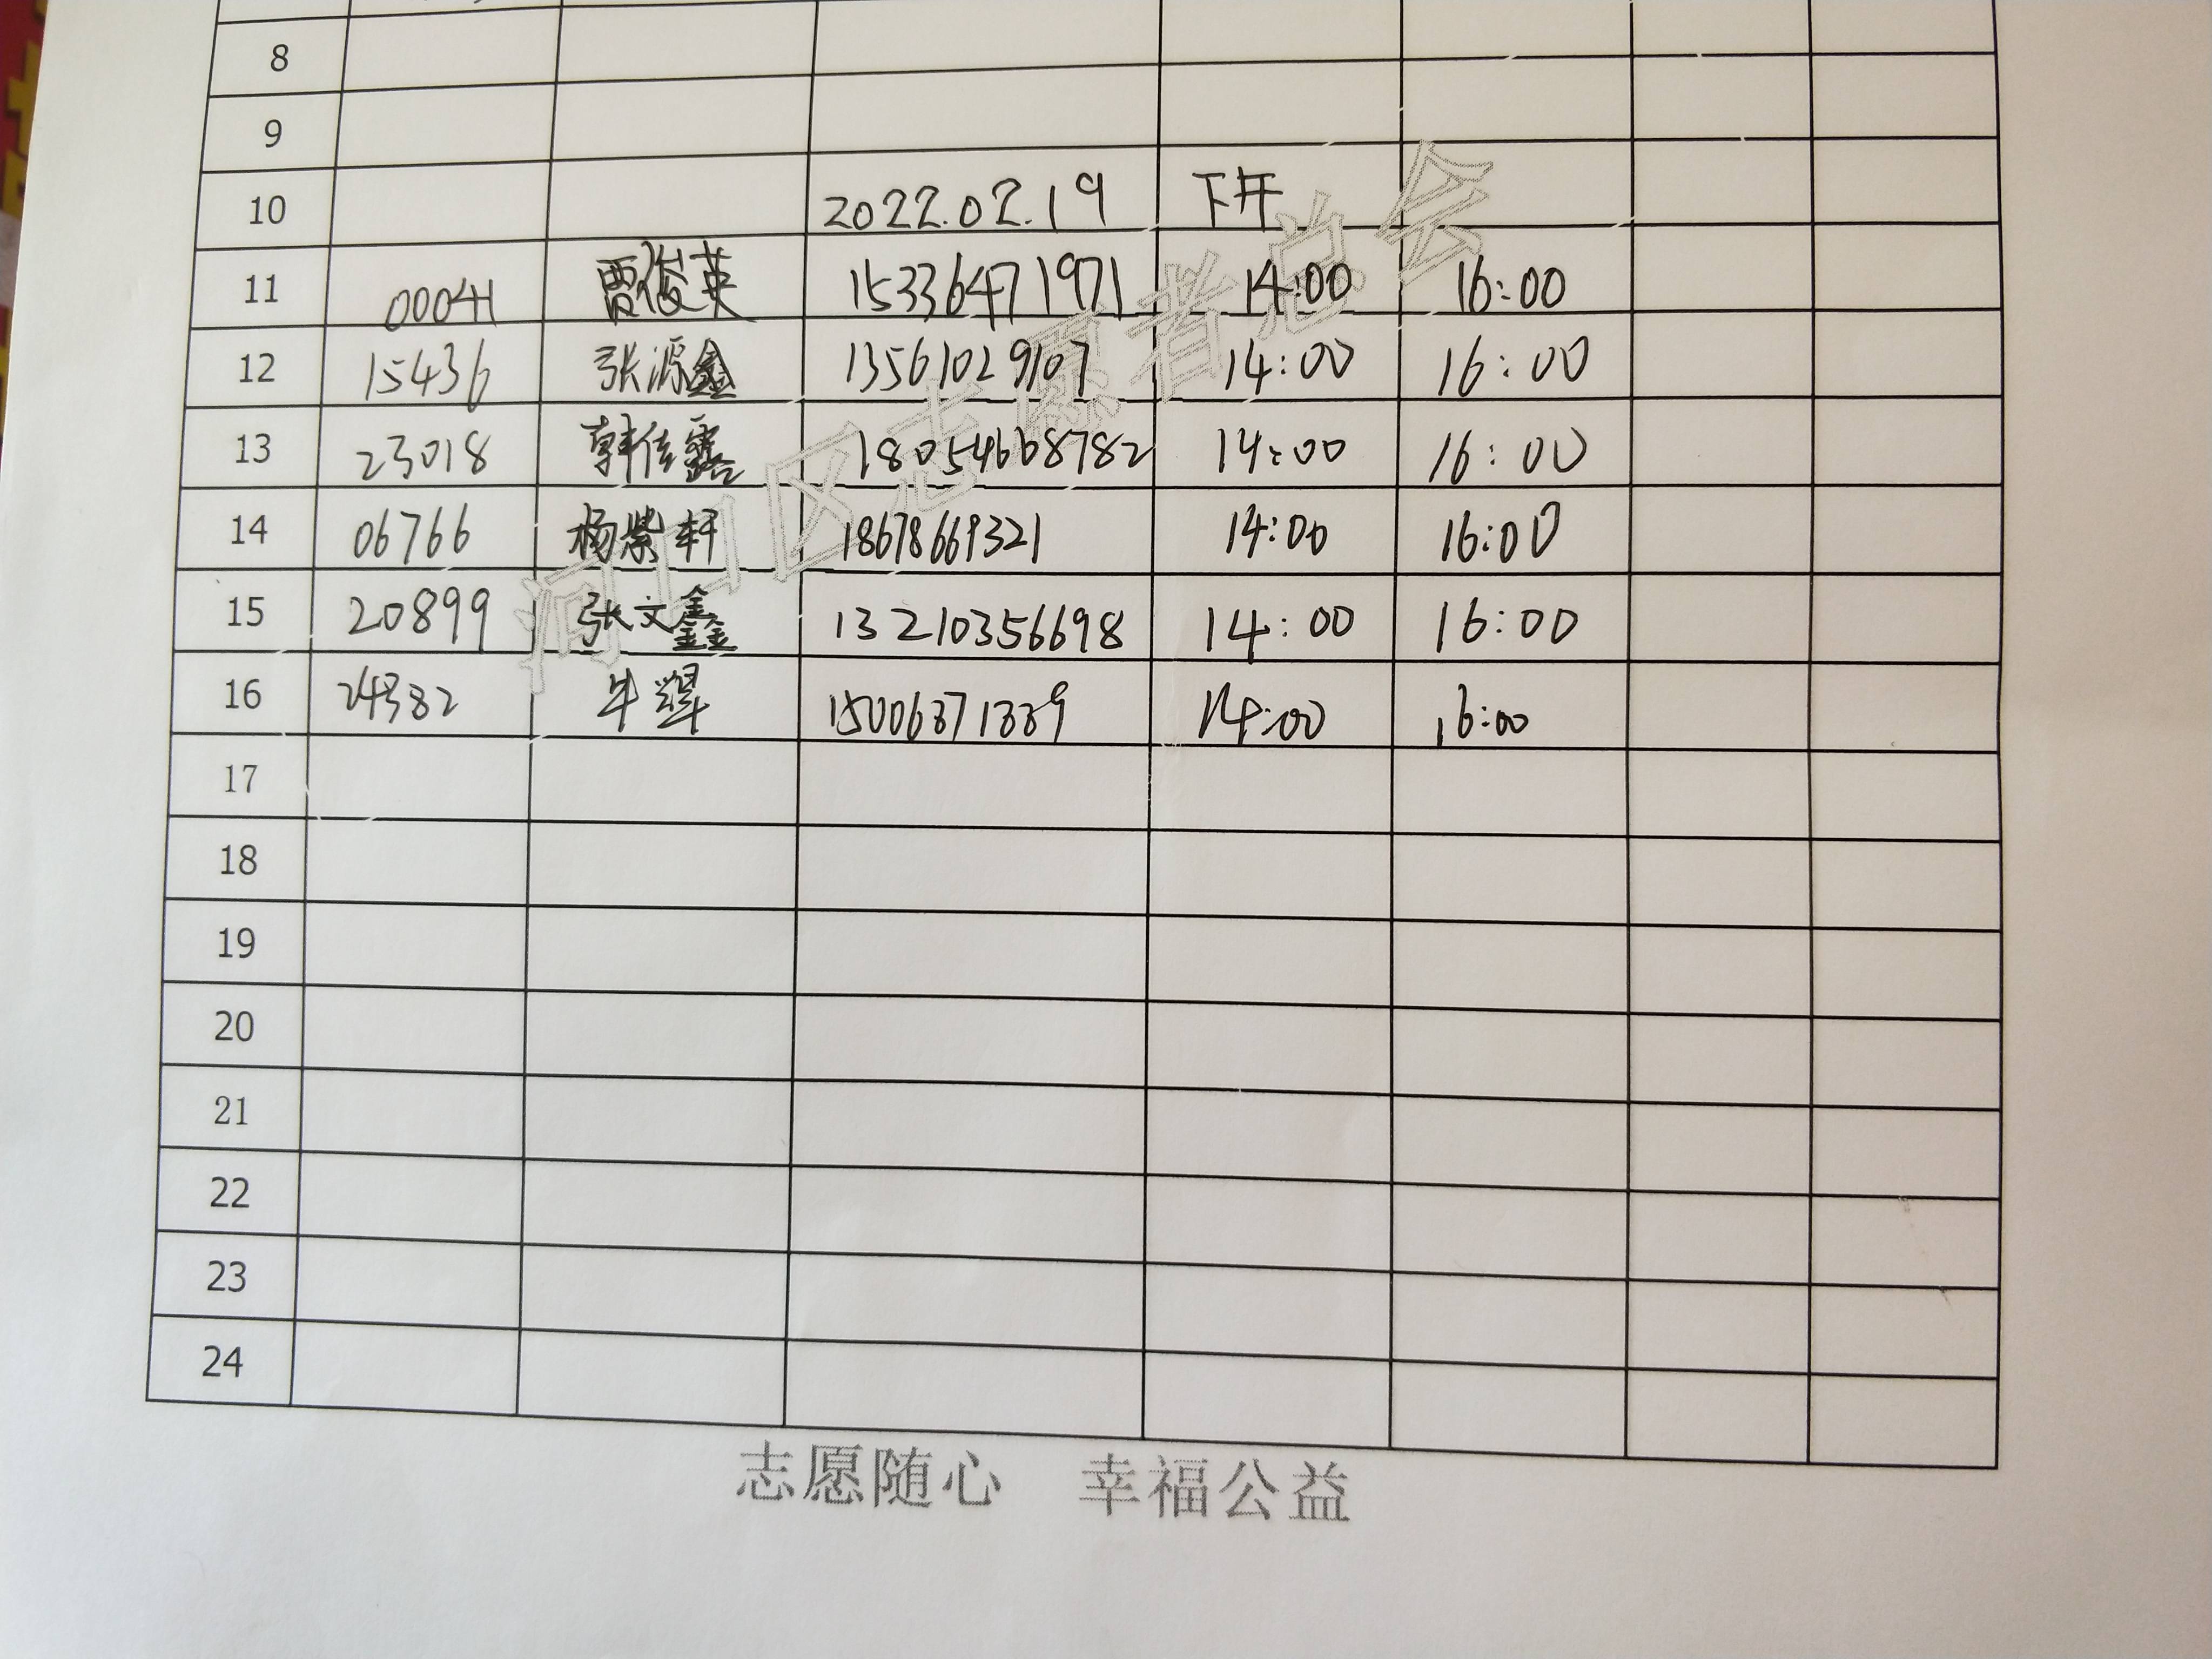 8
9
10 2022.02.19 下午
11 00041 贾俊英 15336471971 14:00 16:00
12 15436 张源鑫 13561029107 14:00 16:00
13 23018 韩佳露 18054668782 14:00 16:00
14 06766 杨紫轩 18678669321 14:00 16:00
15 20899 张文鑫 13210356698 14:00 16:00
16 24382 牛 15006371339 14:00 16:00
17
18
19
20
21
22
23
24
河口区志愿者总会
志愿随心 幸福公益